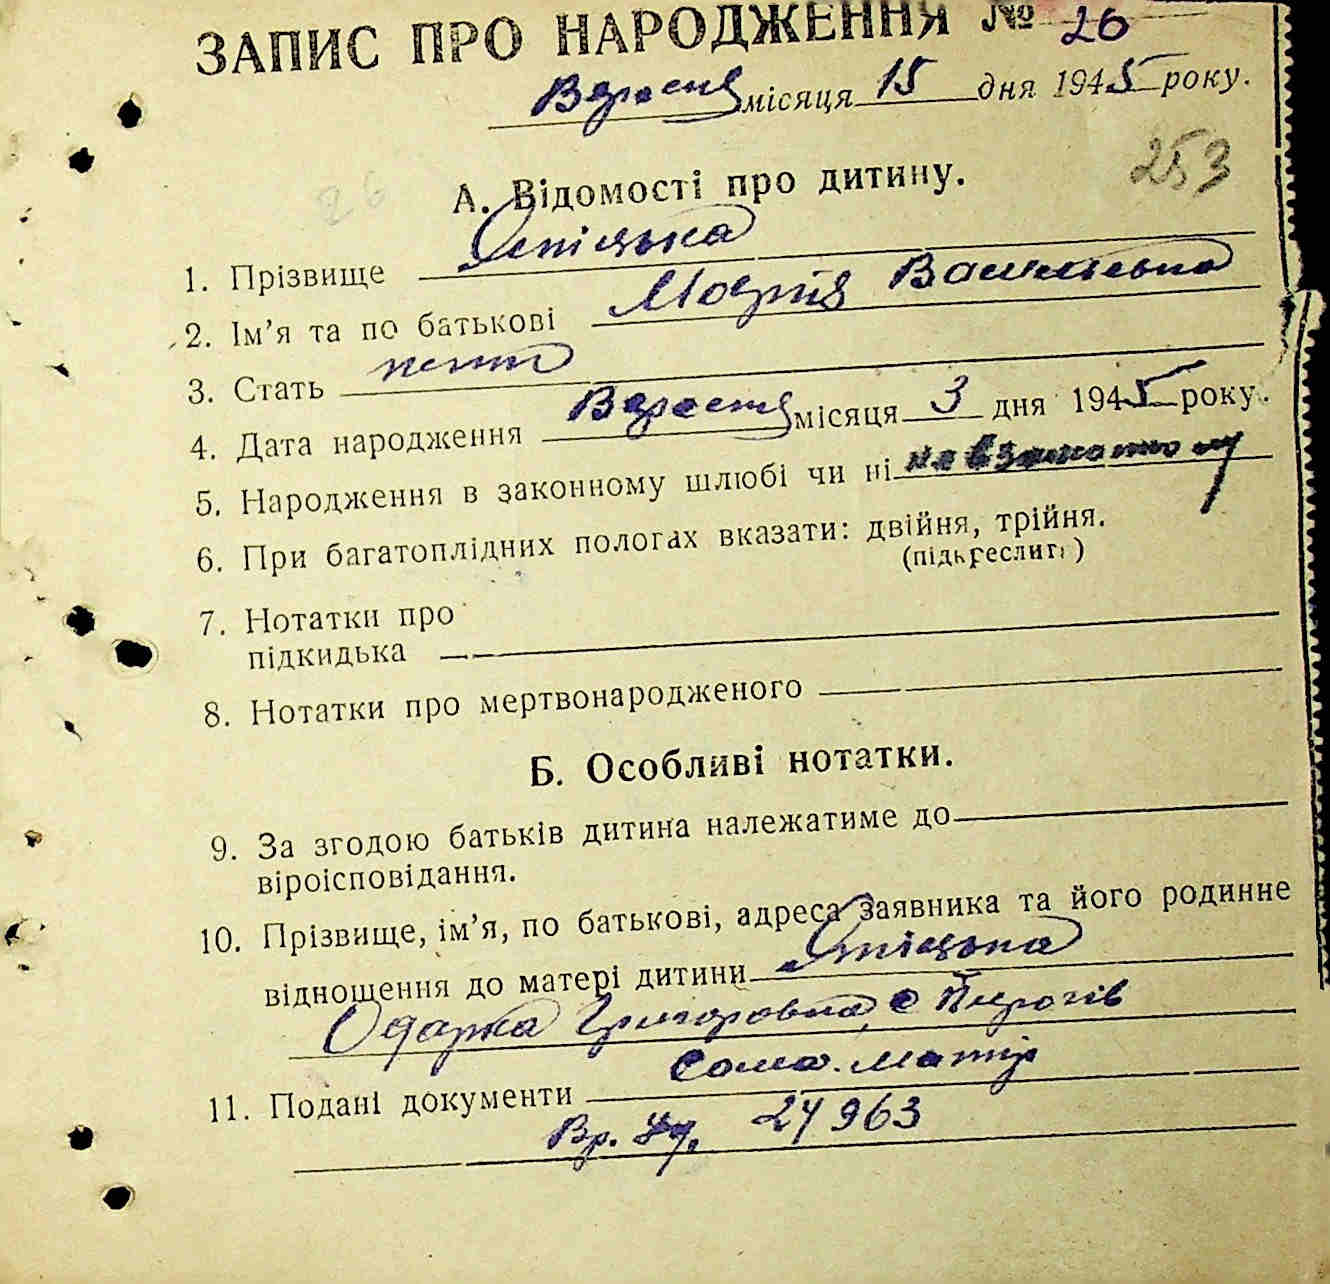 ЗАПИС ПРО НАРОДЖЕННЯ № 26
Вересня місяця 15 дня 1945 року.
253
26
А. Відомості про дитину.
1. Прізвище
2. Ім'я та по батькові Марія Василівна
3. Стать жіноч
4. Дата народження Вересня місяця 3 дня 1945 року.
5. Народження в законному шлюбі чи ні не в законному
6. При багатоплідних пологах вказати: двійня, трійня.
(підкреслити)
7. Нотатки про
підкидька
8. Нотатки про мертвонародженого
Б. Особливі нотатки.
9. За згодою батьків дитина належатиме до
віроісповідання.
10. Прізвище, ім'я, по батькові, адреса заявника та його родинне
відношення до матері дитини
Одарка Григоровна, с Пирогів
сама матір
11. Подані документи
Вр. Уд. 24963